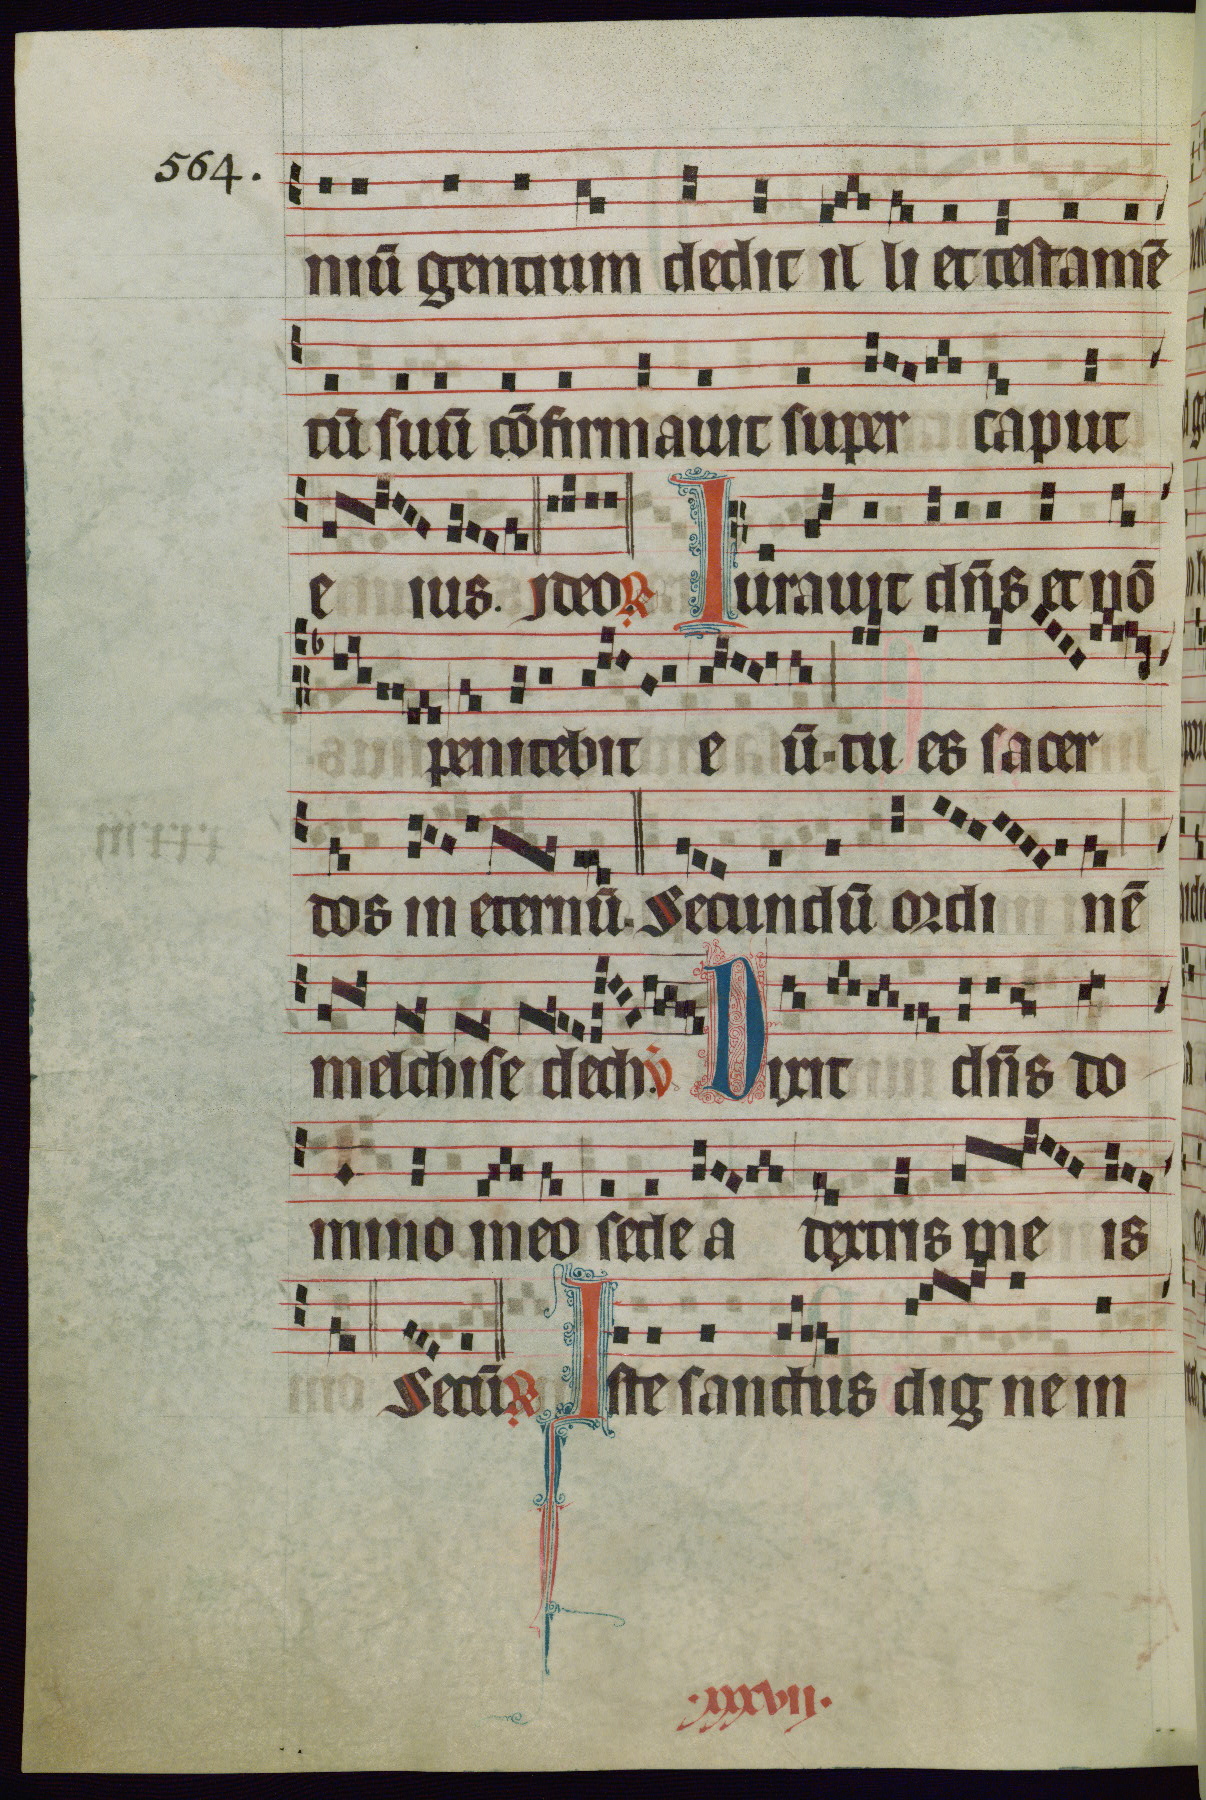 564.
niū gentium dedit il li et testamē
tū suū cōfirmauit super caput
e ius. Ideo ℟ Iurauit dn̄s et nō
penitebit e ū. tu es sacer
dos in eternū. Secundū ordi nē
melchise dech. ℣ Dixit dn̄s do
mino meo sede a dextris me is
Secū ℟ Iste sanctus dig ne in
.xxxvii.